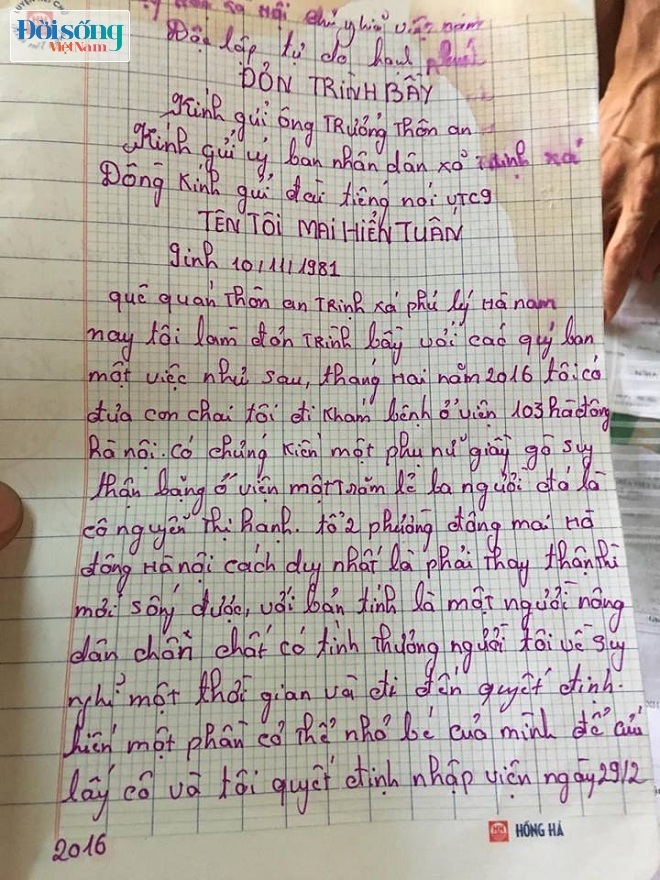 Đờisống
ViệtNam
hội chủ nghĩa việt nam
Độc lập tự do hạnh phúc
ĐƠN TRÌNH BẦY
Kính gửi ông TRưởng Thôn an
Kính gửi uỷ ban nhân dân xã Trịnh xá
Đồng Kính gửi đài tiếng nói VTC9
TÊN TÔI MAI HIỂN TUÂN
Sinh 10/11/1981
quê quán Thôn an TRịnh xá phủ lý Hà nam
nay tôi làm đơn TRình bầy với các quý ban
một việc như sau, tháng Hai năm 2016 tôi có
đưa con chai tôi đi Khám bệnh ở viện 103 hà đông
hà nội. có chứng Kiến một phụ nữ giầy gò suy
thận bằng ở viện một Trăm lẻ ba người đó là
cô nguyễn Thị hạnh. tổ 2 phường đồng mai Hà
đông Hà nội cách duy nhất là phải thay thận thì
mới sống được, với bản tính là một người nông
dân chân chất có tình thương người tôi về suy
nghĩ một thời gian và đi đến quyết định.
hiến một phần cơ thể nhỏ bé của mình để cứu
lấy cô và tôi quyết định nhập viện ngày 29/2
2016
HỒNG HÀ